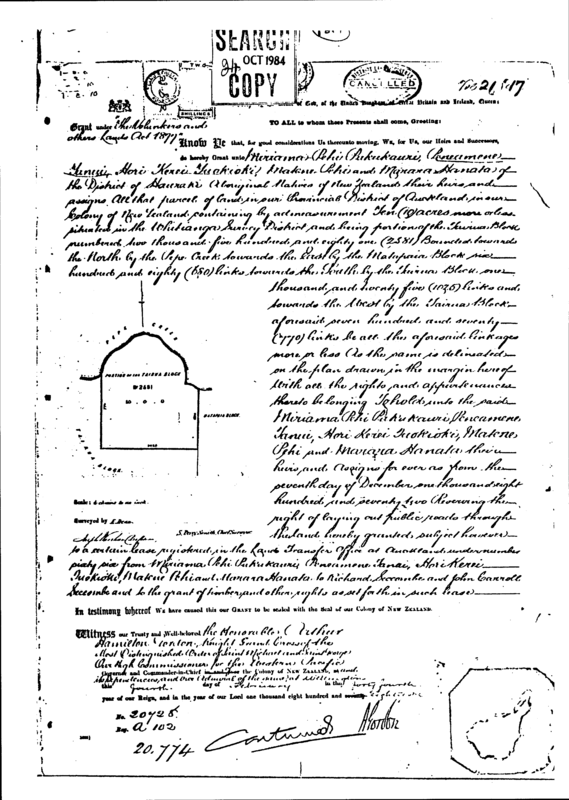 SEARCH
OCT 1984
COPY
CANCELLED
TWO
SHILLINGS
of God, of the United Kingdom of Great Britain and Ireland, Queen:
TO ALL to whom these Presents shall come, Greeting:
Grant under
others Lands Act 187
Know Ye that, for good considerations Us thereunto moving, We, for Us, our Heirs and Successors,
do hereby Grant unto Miriama Pehi Pukukauri,
Hori Kerei Tuokioki, Makene Pehi and Marara Hanata of
the District of Hauraki Aboriginal Natives of New Zealand their heirs and
assigns All that parcel of land in our Provincial District of Auckland in our
Colony of New Zealand containing by admeasurement Ten (10) acres more or less
situated in the Whitianga Survey District and being portion of the Tairua Block
numbered two thousand five hundred and eighty one (2581) Bounded towards
the North by the Pepe Creek towards the East by the Matapaia Block six
hundred and eighty (680) links towards the South by the Tairua Block one
thousand and twenty five (1025) links and
towards the West by the Tairua Block
aforesaid seven hundred and seventy
(770) links be all the aforesaid linkages
more or less As the same is delineated
on the plan drawn in the margin hereof
With all the rights and appurtenances
thereto belonging To hold unto the said
Miriama Pehi Pukukauri,
Hori Kerei Tuokioki, Makene
Pehi and Marara Hanata their
heirs and assigns for ever as from the
seventh day of December one thousand eight
hundred and seventy two Reserving the
right of laying out public roads through
the land hereby granted subject however
to a certain lease registered in the Land Transfer Office at Auckland under number
sixty six from Miriama Pehi Pukukauri, Hori Kerei
Tuokioki, Makene Pehi and Marara Hanata to Richard Seccombe and John Carroll
Seccombe and to the grant of timber and other rights as set forth in such lease
PEPE CREEK
PORTION OF THE TAIRUA BLOCK
No 2581
10 . 0 . 0
MATAPAIA BLOCK
BLOCK
Surveyed by
S. Percy Smith, Chief Surveyor
In testimony whereof We have caused this our GRANT to be sealed with the Seal of our Colony of NEW ZEALAND.
Witness our Trusty and Well-beloved the Honorable Arthur
Hamilton Gordon, Knight Grand Cross of the
Most Distinguished Order of Saint Michael and Saint George
Our High Commissioner for the Western Pacific
Governor and Commander-in-Chief in and over the Colony of NEW ZEALAND,
this fourth day of February in the forty fourth
year of our Reign, and in the year of our Lord one thousand eight hundred and
No. 20725
Reg. A 102
20.774